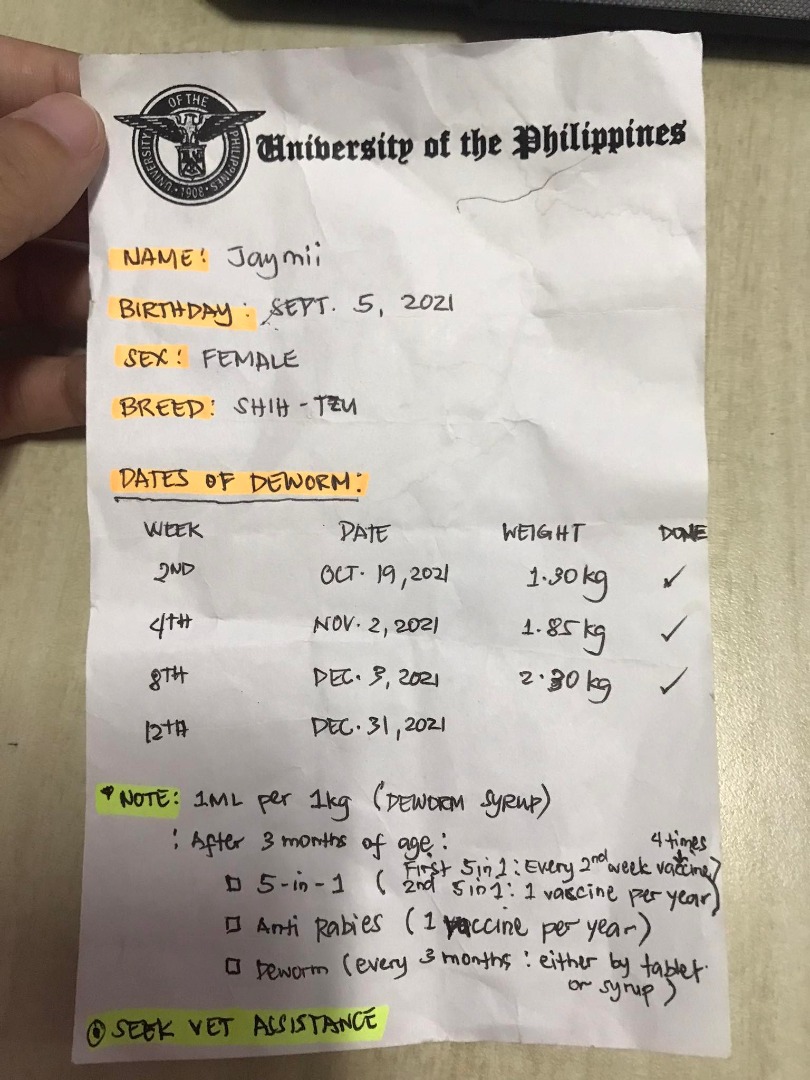 UNIVERSITY OF THE PHILIPPINES
1908
University of the Philippines
NAME: Jaymii
BIRTHDAY: SEPT. 5, 2021
SEX: FEMALE
BREED: SHIH-TZU
DATES OF DEWORM:
WEEK DATE WEIGHT DONE
2ND OCT. 19, 2021 1.30kg ✓
4TH NOV. 2, 2021 1.85kg ✓
8TH DEC. 3, 2021 2.30kg ✓
12TH DEC. 31, 2021
* NOTE: 1ML per 1kg (DEWORM SYRUP)
: After 3 months of age:
4 times
□ 5-in-1 ( First 5in1: Every 2nd week vaccine
2nd 5in1: 1 vaccine per year)
□ Anti Rabies (1 vaccine per year)
□ Deworm (every 3 months: either by tablet
or syrup)
SEEK VET ASSISTANCE